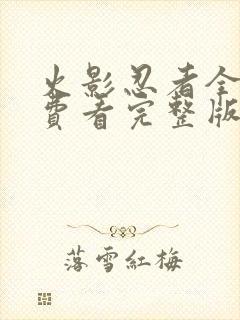 火影忍者全
费看完整版
落雪紅梅